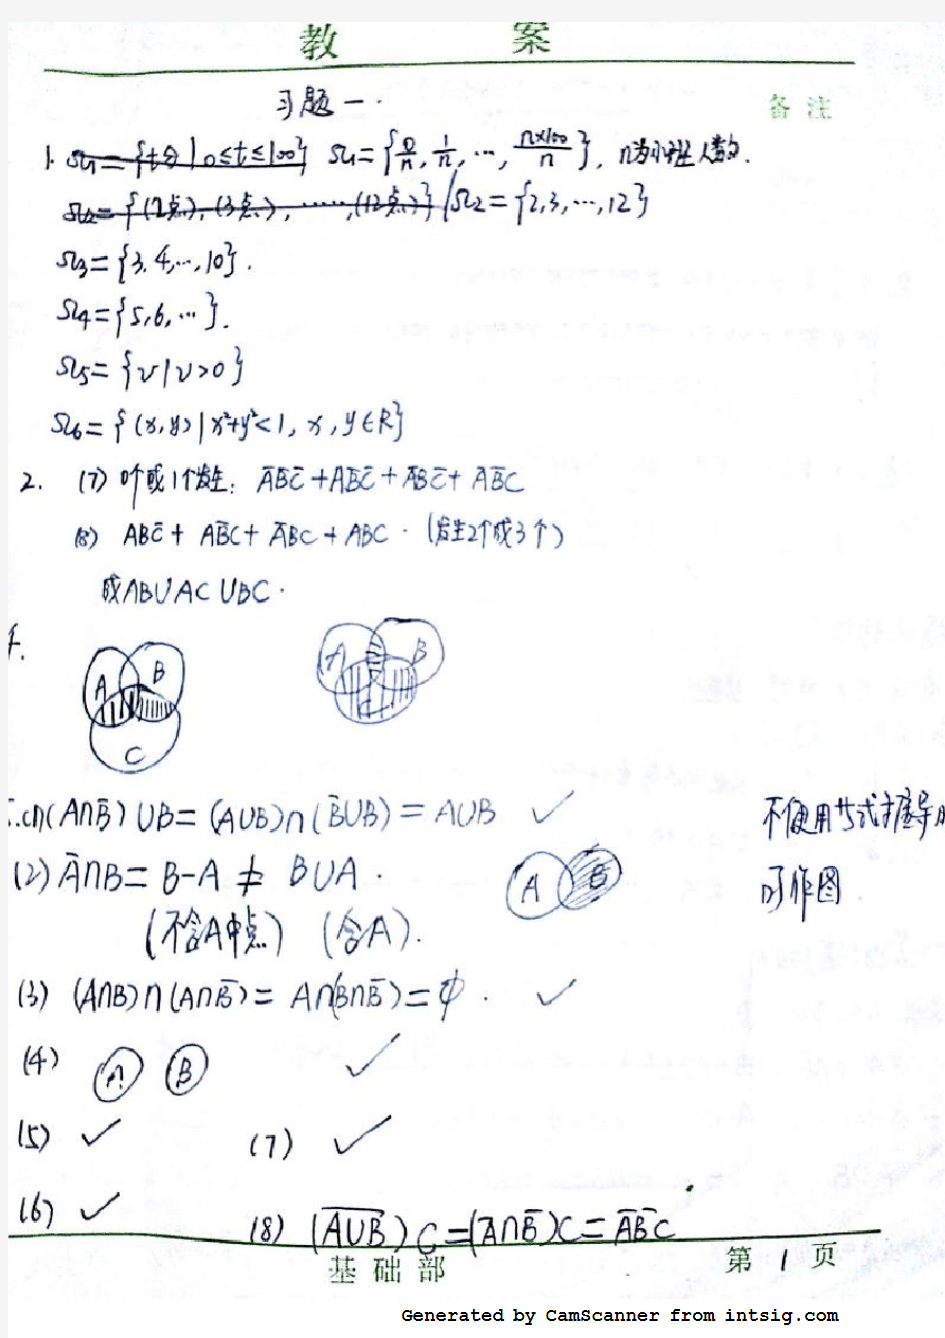 教 案
习题一.
备注
1. Ω1={t分|0≤t≤100} Ω1={0/n, 1/n, …, n×100/n}, n为小班人数.
Ω2={(2点),(3点),……,(12点)} / Ω2={2,3,…,12}
Ω3={3.4,…,10}.
Ω4={5,6,…}.
Ω5={v|v>0}
Ω6={(x,y)|x²+y²<1, x,y∈R}
2. (7) 0个或1个发生: A̅B̅C̅+AB̅C̅+A̅BC̅+A̅B̅C
(8) ABC̅+AB̅C+A̅BC+ABC.(发生2个或3个)
或AB∪AC∪BC.
4.
A B C
A B C
(1)(A∩B̅)∪B=(A∪B)∩(B̅∪B)=A∪B ✓
不使用 式扩展
(2) A̅∩B=B-A≠B∪A.
A B
可作图
(不含A中点) (含A).
(3) (A∩B)∩(A∩B̅)=A∩(B∩B̅)=φ. ✓
(4) A B ✓
(5) ✓ (7) ✓
(6) ✓ (8) (A∪B)̅ C=(A̅∩B̅)C=A̅B̅C
基础部 第 1 页
Generated by CamScanner from intsig.com